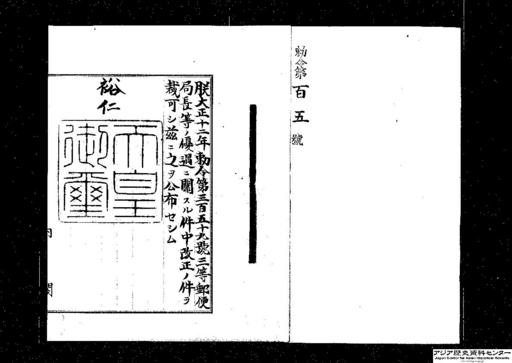 勅令第百五號
朕大正十二年勅令第三百五十九號三等郵便
局長等ノ優遇ニ關スル件中改正ノ件ヲ
裁可シ茲ニ之ヲ公布セシム
裕仁
天皇御璽
内閣
アジア歴史資料センター
Japan Center for Asian Historical Records